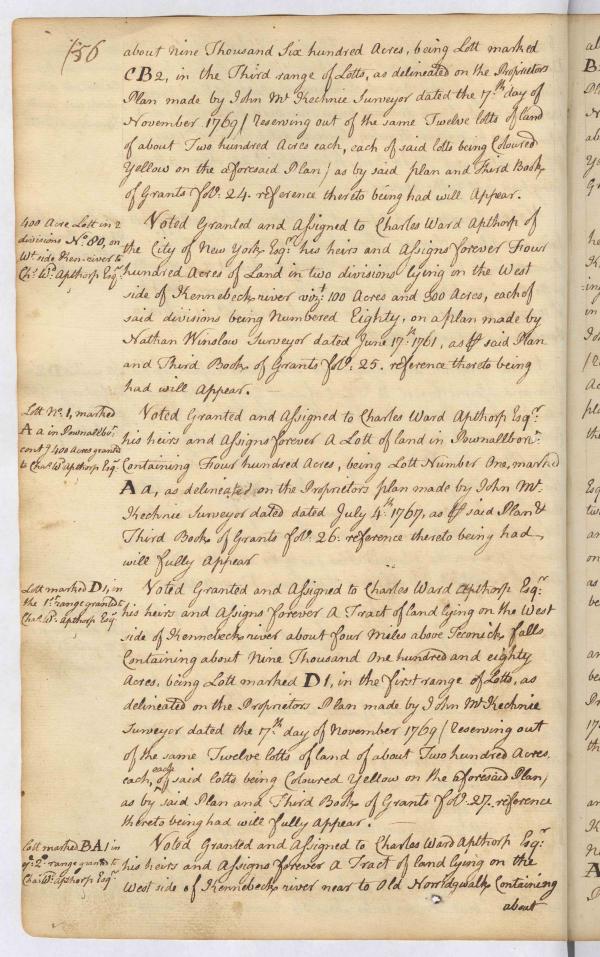 156
about Nine Thousand Six hundred Acres, being Lott marked
CB2, in the Third range of Lotts, as delineated on the Proprietors
Plan made by John McKechnie Surveyor dated the 7th day of
November 1769 / Reserving out of the same Twelve lotts of land
of about Two hundred Acres each, each of said lotts being Coloured
Yellow on the aforesaid Plan / as by said plan and Third Book
of Grants fol: 24. reference thereto being had will Appear.
400 Acre Lott in 2
divisions No. 80, on
Wt. side Ken. river to
Chs. Wd. Apthorp Esqr.
Voted Granted and Assigned to Charles Ward Apthorp of
the City of New York Esqr. his heirs and Assigns forever Four
hundred Acres of Land in two divisions lying on the West
side of Kennebeck river vizt. 100 Acres and 300 Acres, each of
said divisions being Numbered Eighty, on a plan made by
Nathan Winslow Surveyor dated June 17th. 1761, as ⅌ said Plan
and Third Book of Grants fol: 25. reference thereto being
had will Appear.
Lott No. 1, marked
Aa in Pownallboro:
cont.g 400 Acres granted
to Chas. Wd. Apthorp Esqr.
Voted Granted and Assigned to Charles Ward Apthorp Esqr.
his heirs and Assigns forever A Lott of land in Pownallboro:
Containing Four hundred Acres, being Lott Number One, marked
Aa, as delineated on the Proprietors plan made by John Mc.
Kechnie Surveyor dated dated July 4th. 1767, as ⅌ said Plan &
Third Book of Grants fol: 26. reference thereto being had
will fully Appear
Lott marked D1, in
the 1st. range granted to
Chas. Wd. Apthorp Esqr.
Voted Granted and Assigned to Charles Ward Apthorp Esqr.
his heirs and Assigns forever A Tract of land lying on the West
side of Kennebeck river about four Miles above Teconick falls
Containing about Nine Thousand One hundred and eighty
Acres, being Lott marked D1, in the first range of Lotts, as
delineated on the Proprietors Plan made by John McKechnie
Surveyor dated the 17th. day of November 1769 / Reserving out
of the same Twelve lotts of land of about Two hundred Acres
each, each of said lotts being Coloured Yellow on the aforesaid Plan /
as by said Plan and Third Book of Grants fol: 27. reference
thereto being had will fully Appear.
Lott marked BA1 in
ye. 2d. range granted to
Chas. Wd. Apthorp Esqr.
Voted Granted and Assigned to Charles Ward Apthorp Esqr.
his heirs and Assigns forever A Tract of land lying on the
West side of Kennebeck river near to Old Norridgwalk Containing
about